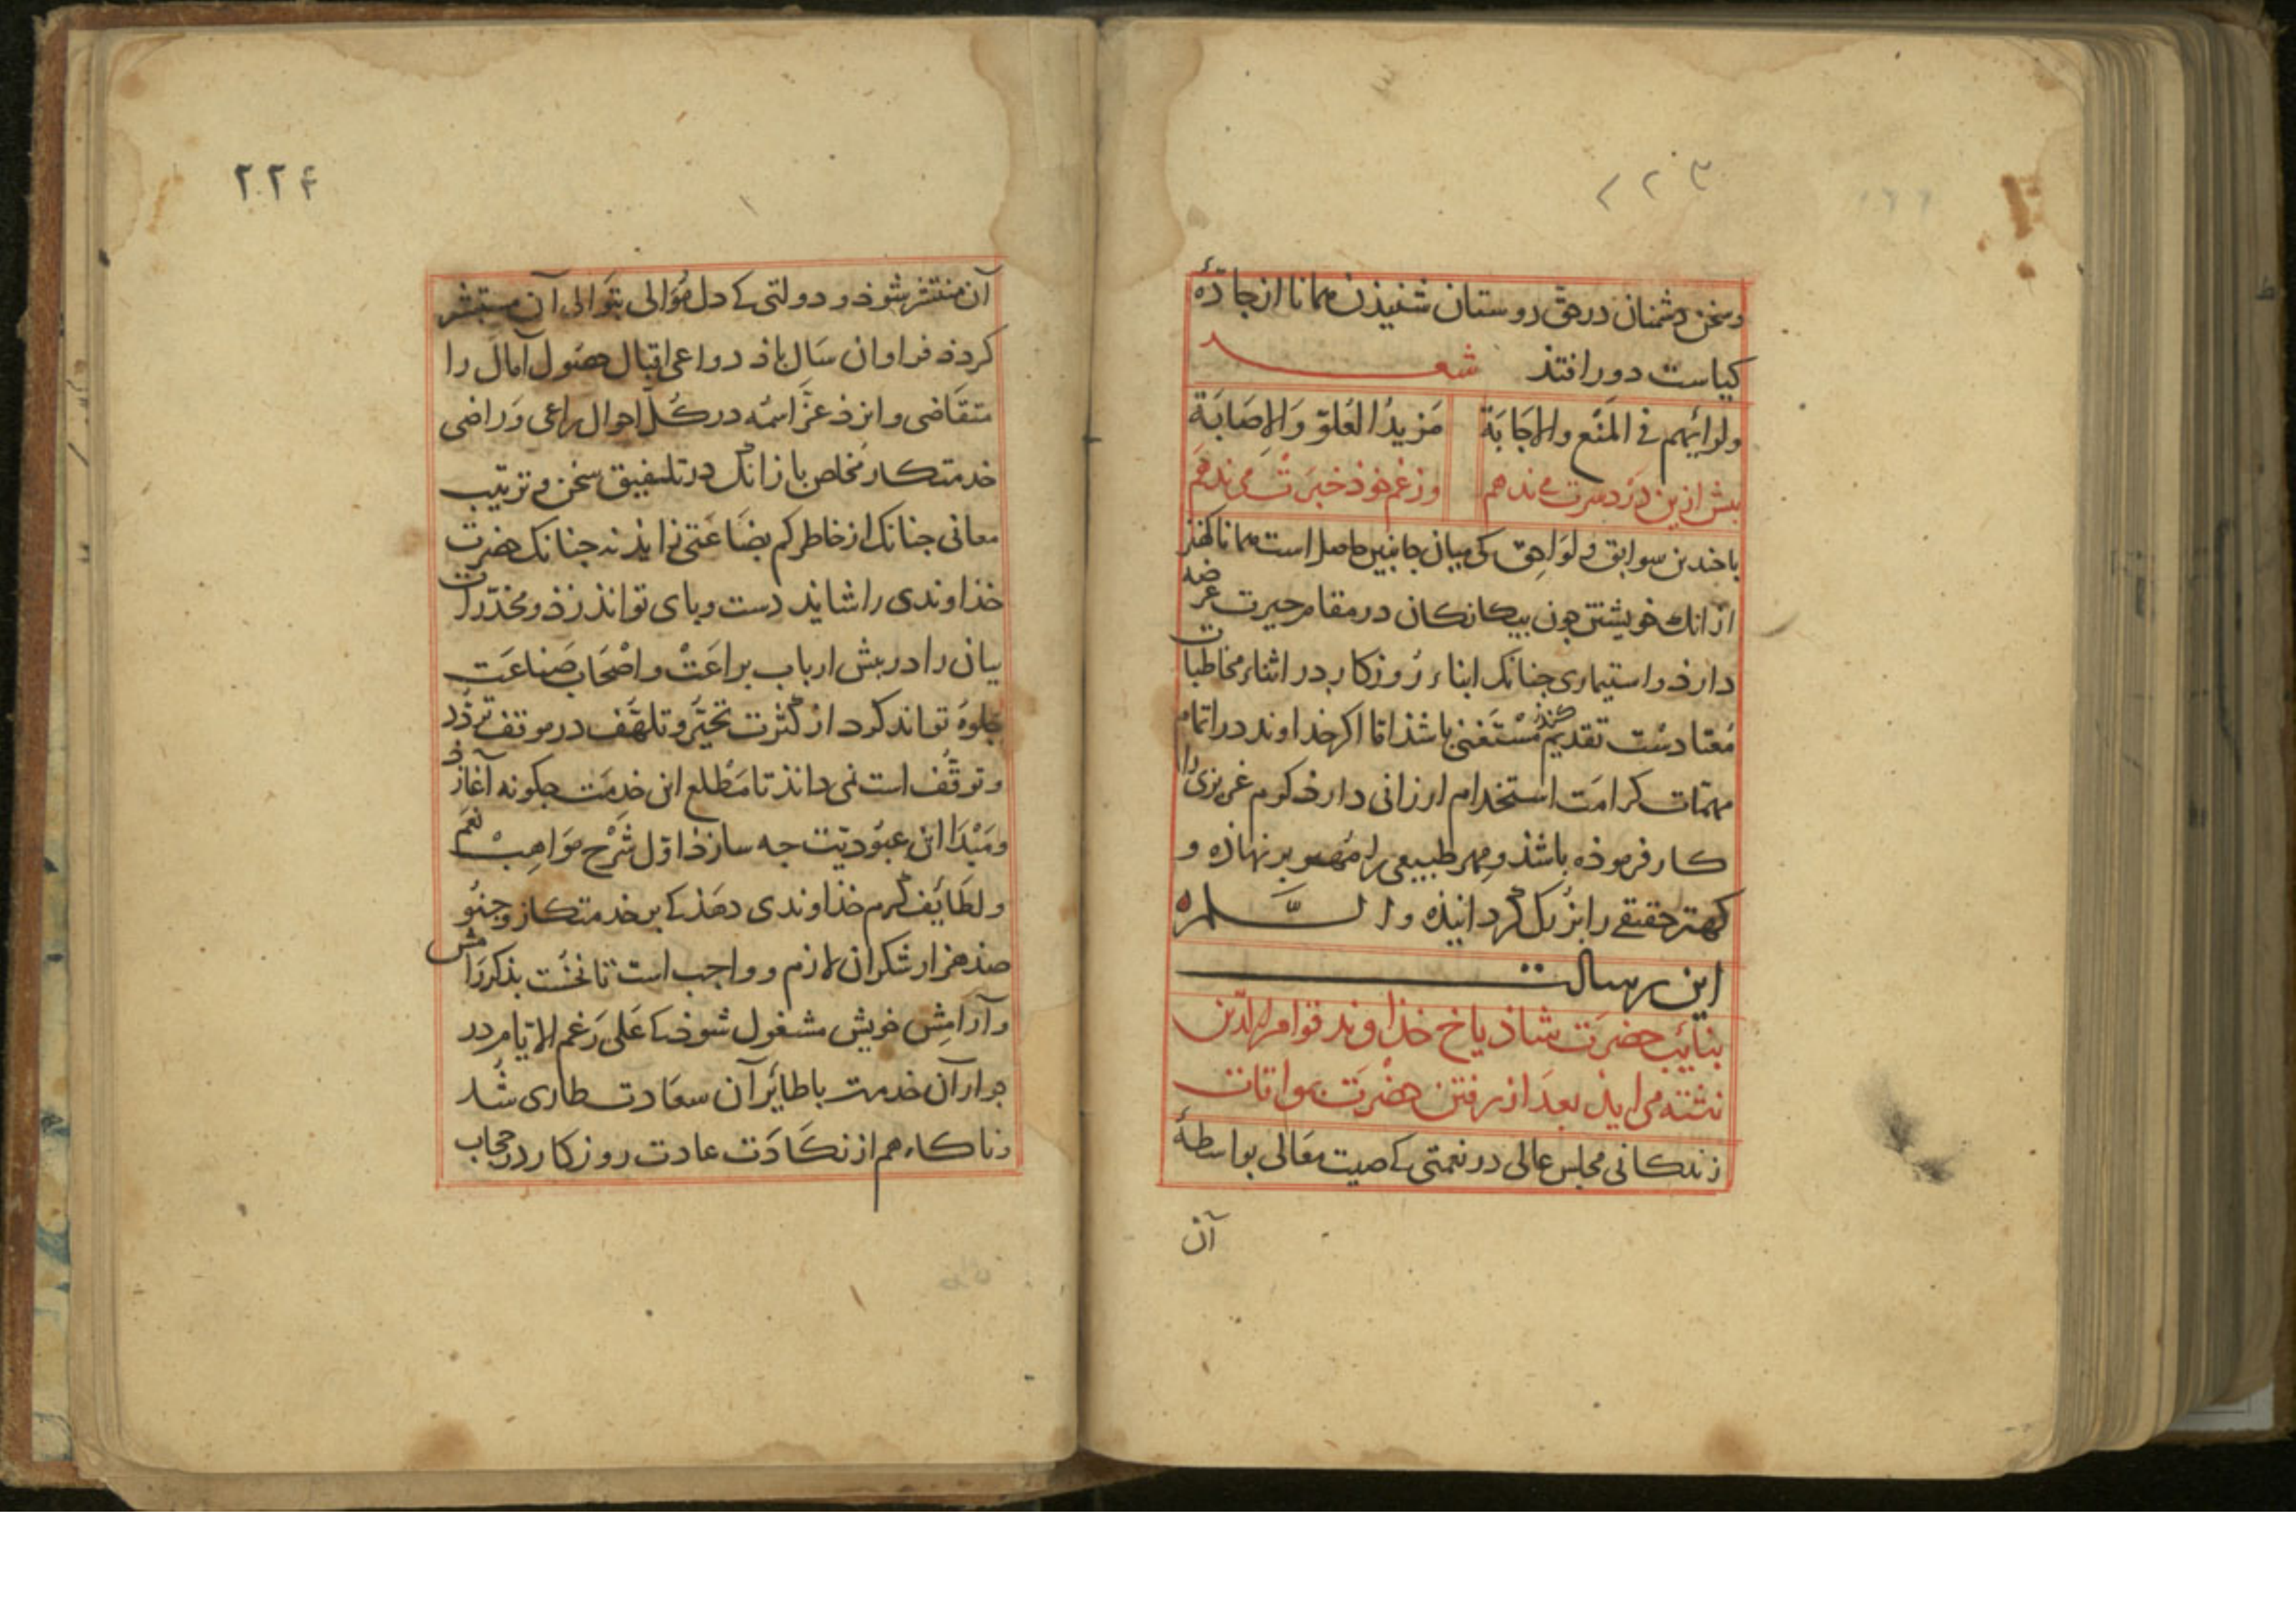 ٢٢٣
وسخن دشمنان در حق دوستان شنیذن همانا از جادّهٔ
کیاست دور افتذ شعر
ولرأیهم فی المَنْع والاجَابَة مَزیدُ العُلوّ وَالاِصَابَة
بیش ازین دَرد سرت می ندهم وز غم خوذ خبرت می ندهم
با جندین سوابق و لَوَاحِق کی میان جانبین حاصل است همانا کهتر
از انک خویشتن جون بیکانکان در مقام حیرت عرضه
دارذ و استیماری جنانک ابناء روزکار در اثناء مخاطبات
مُعتاد سْت تقدیم کنذ مُسْتَغنی باشذ امّا اکر خداوند در اتمام
مهمّات کرامَت استخدام ارزانی دارذ کرم غریزی را
کار فرموذه باشذ و مهر طبیعی را مُهر بر نهاذه و
کهتر حقیقی را بزرک کردانیذه والسَّلم
این رسالت
بنایب حضرَت شاذیاخ خذاوند قوام الدّین
نبشته می ایذ بعد از رفتن حضرَت
زندکانی مجلس عالی در نعمتی کی صیت مَعَالی بواسطهٔ
آن
٢٢۴
آن منتشر شوذ و دولتی کی دل مُوَالی بتَوالی آن مستبشر
کردذ فراوان سَال باذ دواعی اقبال حصُول آمال را
متقاضی و ایزذ عزَّ اسمُه در کُلّ احوال راعی وَراضی
خدمتکار مخلص بازانک در تلفیق سخن و ترتیب
معانی جنانک از خاطر کم بضَاعَتی زایذ نه جنانک حضرت
خذاوندی را شایذ دست و بای تواند زذ و مخدّرات
بیان را در بیش ارباب براعَتْ و اصْحَاب صَناعَت
جلوهٔ تواند کرد از کثرت تحیّر و تلهّف در موقف تردُّد
و توقُّف است نمی دانذ تا مَطلع این خدمَت جکونه آغازذ
و مَبْدَا این عبُودیّت جه سازذ اوّل شَرْح مَوَاهِبْ نعَم
و لطَایف کرم خذاوندی دهذ کی بر خدمتکار وجنو
صذ هزار شکر ان لازم و واجب است تا نخُست بذکر رامش
و آرامِش خویش مشغول شوذ کی عَلی رَغم الایّام در
جوار آن خدمت با طایَر آن سعَادت طاری شُد
و ناکاه هم از نکَادَت عادت روزکار در حجاب